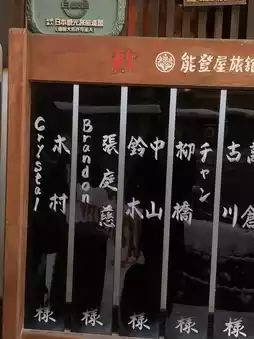 日本観光旅館連盟
能登屋旅館
古川 様
チャン
柳橋 様
中山
鈴木 様
張庭慈
Brandon 様
木村
Crystal 様